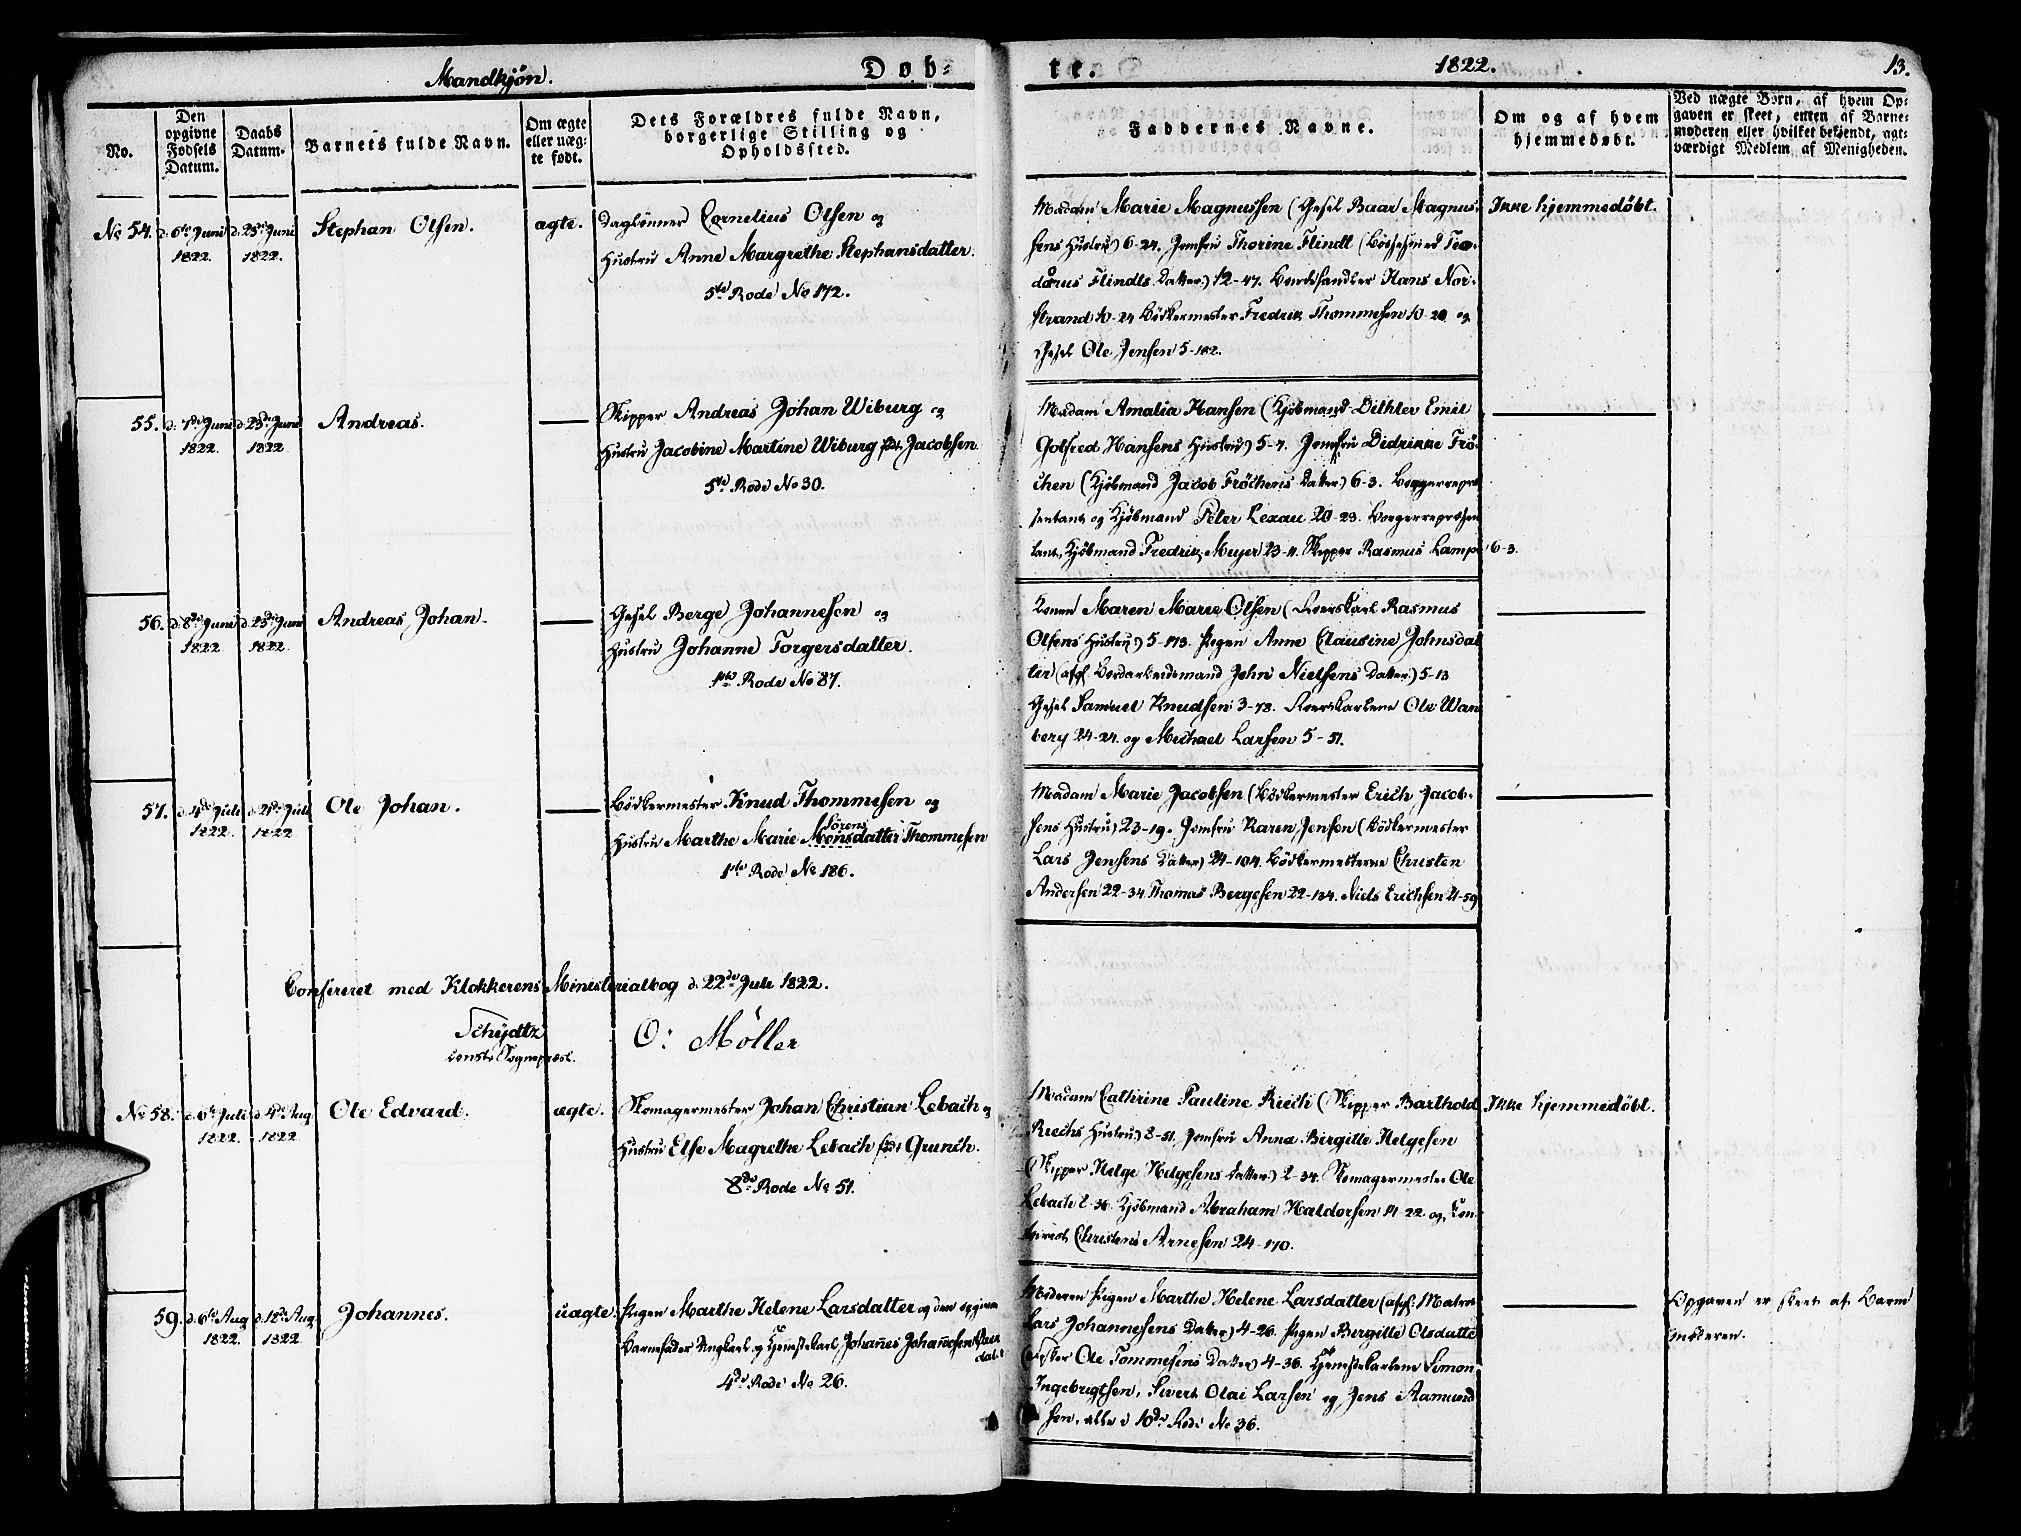 Mandkjøn.
Døb-
te.
1822.
13.
No.
Den opgivne Fødsels Datum.
Daabs Datum.
Barnets fulde Navn.
Om ægte eller uæg-te født.
Dets Forældres fulde Navn, borgerlige Stilling og Opholdssted.
Faddernes Navne.
Om og af hvem hjemmedøbt.
Ved uægte Børn, af hvem Op-gaven er skeet, enten af Barne-moderen eller hvilket bekjendt, agt-værdigt Medlem af Menigheden.
No 54.
d. 6te Juni 1822.
d. 23de Juni 1822.
Stephan Olsen.
ægte.
Daglønner Cornelius Olsen og
Hustru Anne Margrethe Stephansdatter.
5te Rode No 172.
Madam Marie Magnussen (Gesel Baar Magnus-
sens Hustru) 6-24. Jomfru Thorine Flindt (Bøssesmed Teo-
dorus Flindts Datter) 12-47. Bordshandler Hans Nor-
strand 10-24 Bødkermester Fredrik Thommesen 10-20 og
Gesel Ole Jensen 5-182.
Ikke hjemmedöbt.
55.
d. 7de Juni 1822.
d. 23de Juni 1822
Andreas.
Skipper Andreas Johan Wiburg og
Hustru Jacobine Martine Wiburg født Jacobsen
5te Rode No 30.
Madam Amalia Hansen (Kjøbmand Dithlev Emil
Gotfred Hansens Hustru) 5-7. Jomfru Didrikke Frö-
chen (Kjøbmand Jacob Fröchens Datter) 6-3. Borgerrepræ
sentant og Kjøbmand Peter Lexau 20-23. Borgerrepræsen
tant, Kjøbmand Fredrik Meyer 23-11. Skipper Rasmus Lampe 6-3.
56.
d. 8de Juni 1822
d. 23de Juni 1822.
Andreas Johan.
Gesel Berge Johannesen og
Hustru Johanne Torgersdatter.
1ste Rode No 87.
Konen Maren Marie Olsen (Rorskarl Rasmus
Olsens Hustru) 5-173. Pigen Anne Clausine Johnsdat
ter (afg. Bordarbeidsmand John Nielsens Datter) 5-13
Gesel Samuel Knudsen 3-78. Rorskarlene Ole Wan
berg 24-24. og Michael Larsen 5-51.
57.
d. 4de Juli 1822.
d. 21de Juli 1822
Ole Johan.
Bødkermester Knud Thommesen og
Sörens
Hustru Marthe Marie Monsdatter Thommesen
1ste Rode No 186.
Madam Marie Jacobsen (Bødkermester Erich Jacob-
sens Hustru) 23-19. Jomfru Karen Jensen (Bødkermester
Lars Jensens Datter) 24-104. Bødkermesterne Christen
Andersen 22-34. Thomas Bergesen 22-134. Niels Erichsen 21-59
Confereret med Klokkerens Ministerialbog d. 22de Juli 1822.
Schydtz
const. Sognepræst.
O: Möller
No 58.
d. 6te Juli 1822.
d. 4de Aug 1822.
Ole Edvard.
ægte.
Skomagermester Johan Christian Lebach og
Hustru Else Magrethe Lebach født Grunch.
8de Rode No 51.
Madam Cathrine Pauline Riech (Skipper Barthold
Riechs Hustru) 8-51. Jomfru Anna Birgitte Helgesen
(Skipper Helge Helgesens Datter) 2-34. Skomagermester Ole
Lebach 2-36. Kjøbmand Abraham Haldorsen 14-22. og
Christens Arnesen 24-170.
Ikke hjemmedöbt.
59.
d. 6te Aug 1822.
d. 18de Aug 1822
Johannes.
uægte.
Pigen Marthe Helene Larsdatter og den opgivne
Barnefader Ungkarl og Hjemstekarl Johannes Johannesen
4de Rode No 26.
Moderen Pigen Marthe Helene Larsdatter (afg. Matros
Lars Johannesens Datter) 4-26. Pigen Bergitte Olsdatte
Ole Tommesens Datter) 4-36. Hjemstekarlene Simon
Ingebrigtsen, Sivert Olai Larsen og Jens Aamund
sen, alle i 10de Rode No 36.
Opgaven er skeet af Barne
moderen.